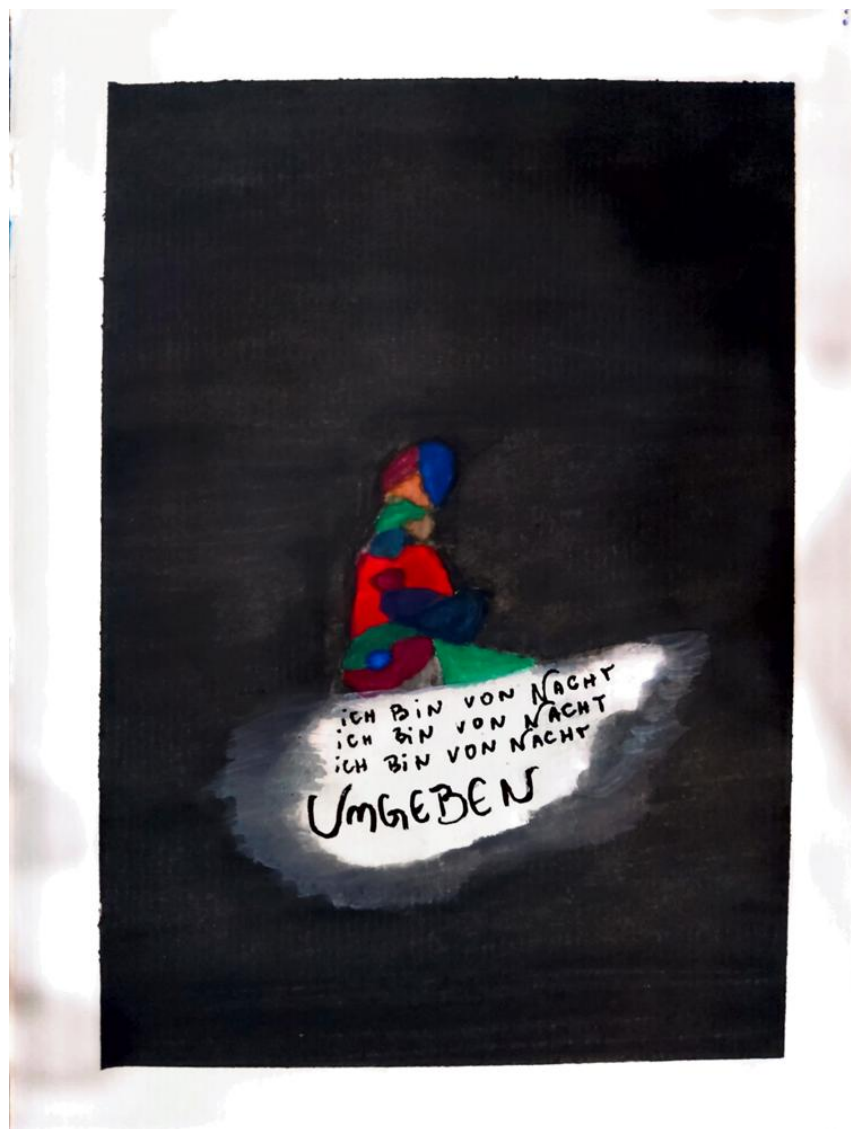 iCH BiN VON NACHT
iCH BiN VON NACHT
iCH BiN VON NACHT
UMGEBEN